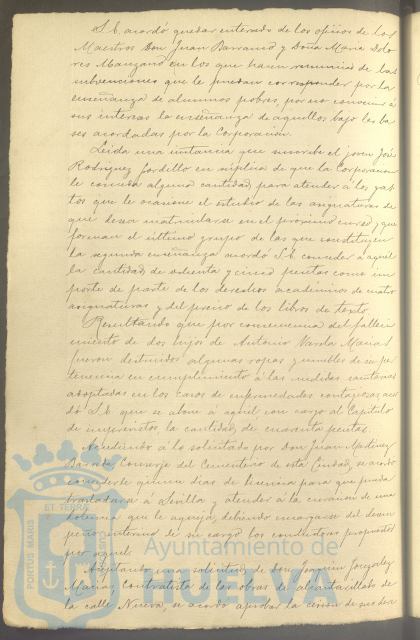 S.E. acordó quedar enterado de los oficios de los
Maestros Don Juan Barranco y Doña María Dolo-
res Manzano en los que hacen renuncia de las
subvenciones que le puedan corresponder por la
enseñanza de alumnos pobres, por no convenir á
sus intereses la enseñanza de aquellos bajo las ba-
ses acordadas por la Corporación.
Leida una instancia que suscribe el joven José
Rodríguez Gordillo en súplica de que la Corporación
le conceda alguna cantidad para atender á los gas-
tos que le ocasione el estudio de las asignaturas de
que desea matricularse en el próximo curso y que
forman el último grupo de las que constituyen
la segunda enseñanza acordó S.E. conceder á aquel
la cantidad de setenta y cinco pesetas como im-
porte de parte de los derechos académicos de cuatro
asignaturas y del precio de los libros de texto.
Resultando que por consecuencia del falleci-
miento de dos hijos de Antonio Varela Macías
fueron destruidos algunas ropas y muebles de su per-
tenencia en cumplimiento á las medidas sanitarias
adoptadas en los casos de enfermedades contagiosas, acor-
dó S.E. que se abone á aquel con cargo al Capitulo
de imprevistos la cantidad de cuarenta pesetas.
Accediendo á lo solicitado por Don Juan Martinez
Conserje del Cementerio de esta Ciudad, se acordó
concederle quince dias de licencia para que pueda
trasladarse á Sevilla y atender á la curación de una
dolencia que le aqueja, debiendo encargarse del desem-
peño interino de su cargo los conductores propuestos
por aquel.
Aceptando una solicitud de Don Joaquin González
Macías, contratista de las obras de alcantarillado de
la calle Nueva, se acordó aprobar la cesión de sus dere
ET TERRAE
PORTUS MARIS
Ayuntamiento de
HUELVA